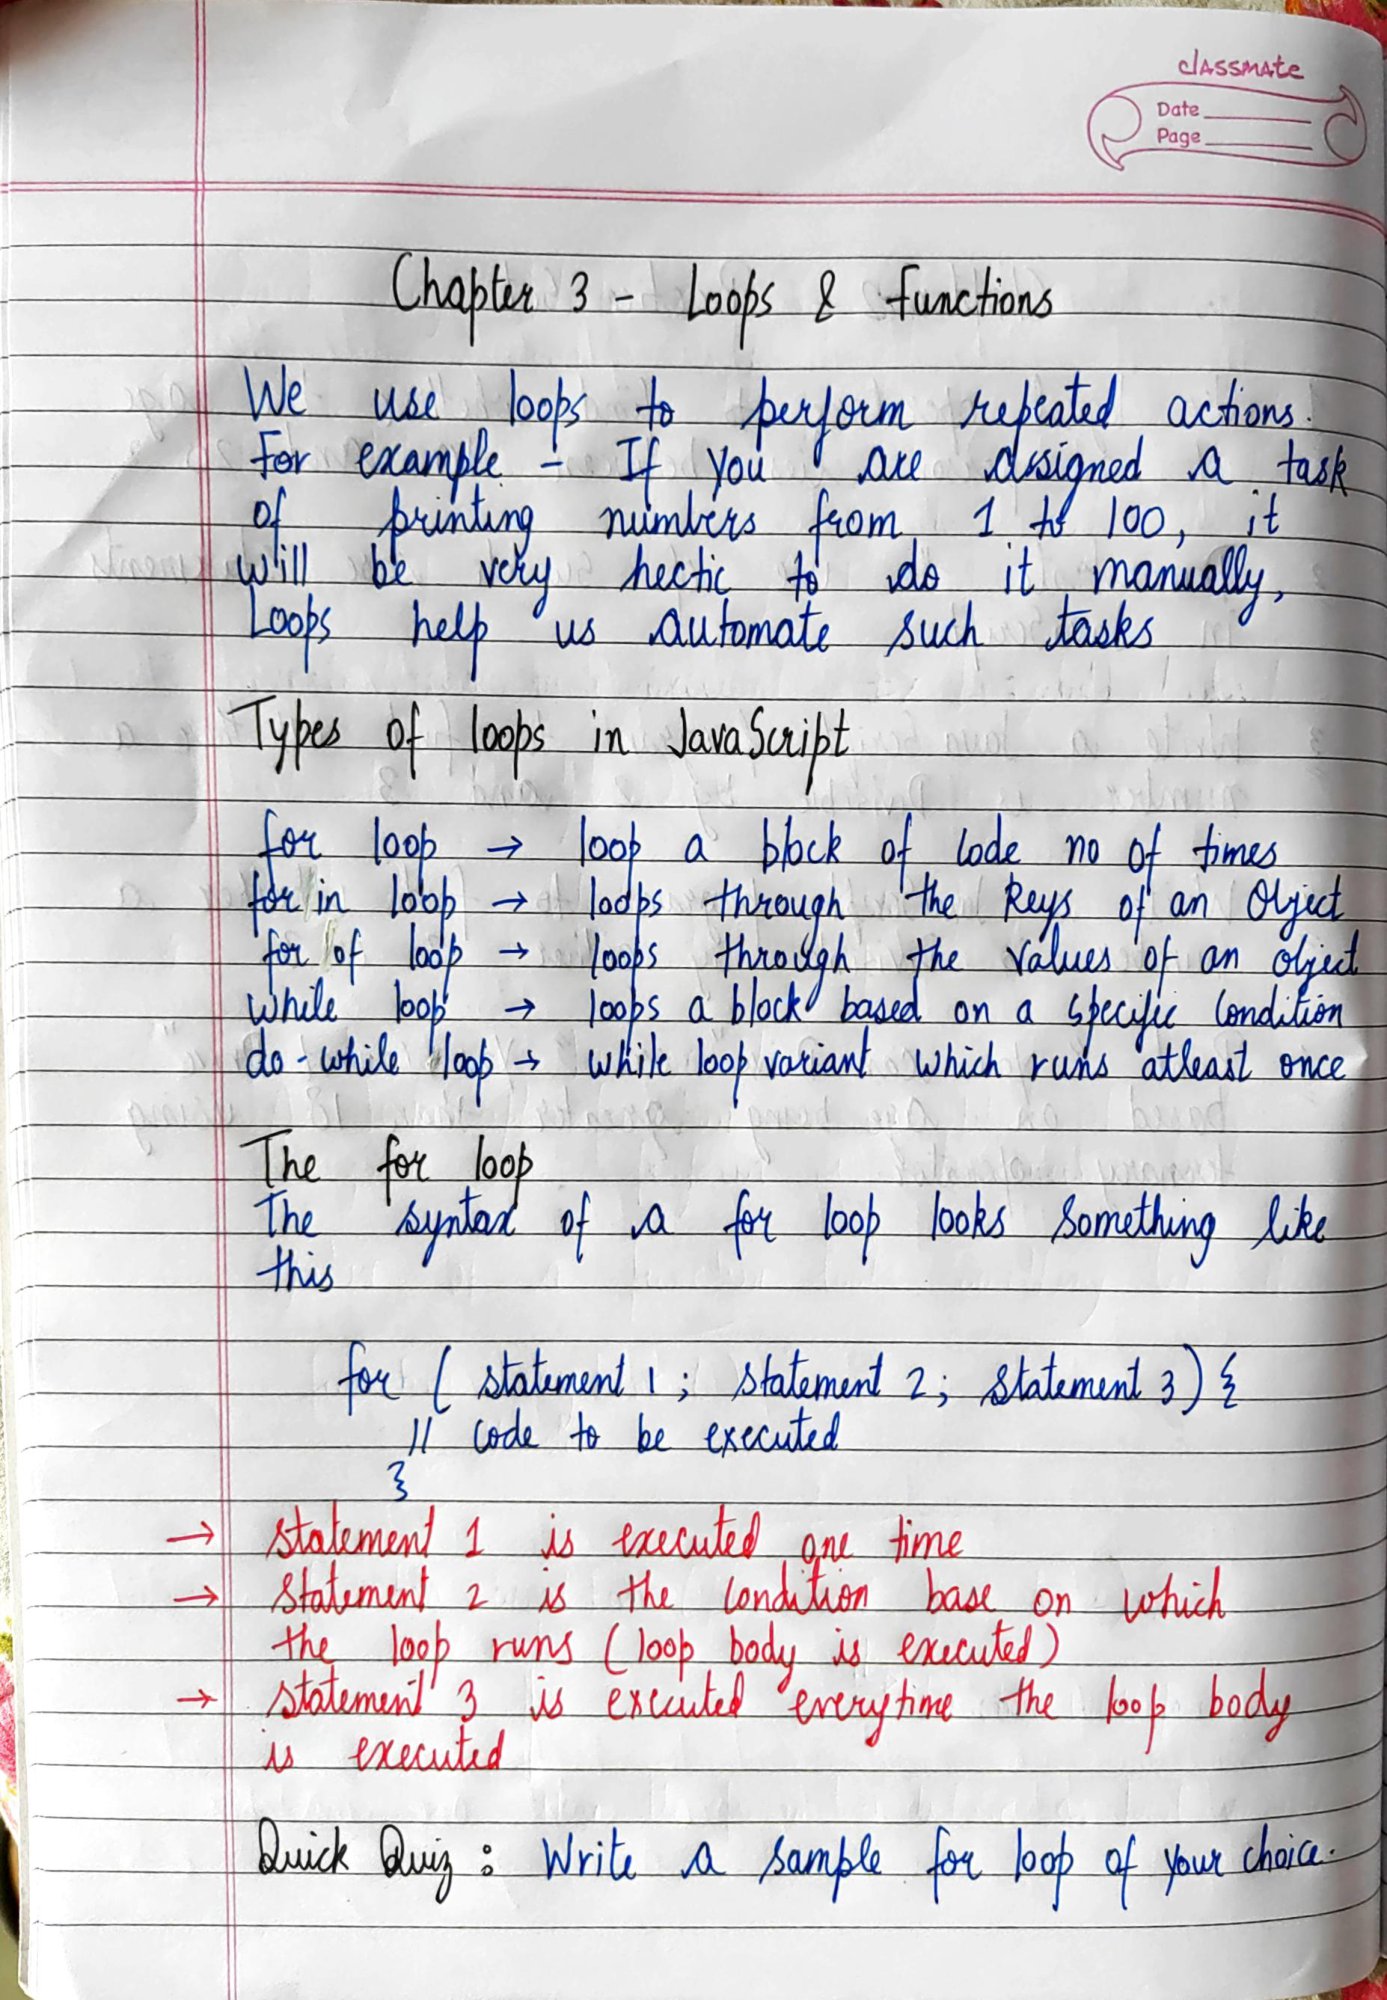 classmate
Date
Page
Chapter 3 - Loops & functions
We use loops to perform repeated actions.
For example - If you are assigned a task
of printing numbers from 1 to 100, it
will be very hectic to do it manually,
Loops help us automate such tasks
Types of loops in JavaScript
for loop → loop a block of code no of times
for in loop → loops through the keys of an Object
for of loop → loops through the values of an object
while loop → loops a block based on a specific condition
do-while loop → while loop variant which runs atleast once
The for loop
The syntax of a for loop looks something like
this
for ( statement 1 ; statement 2; statement 3) {
// code to be executed
}
→ statement 1 is executed one time
→ statement 2 is the condition base on which
the loop runs (loop body is executed)
→ statement 3 is executed everytime the loop body
is executed
Quick Quiz : Write a sample for loop of your choice.